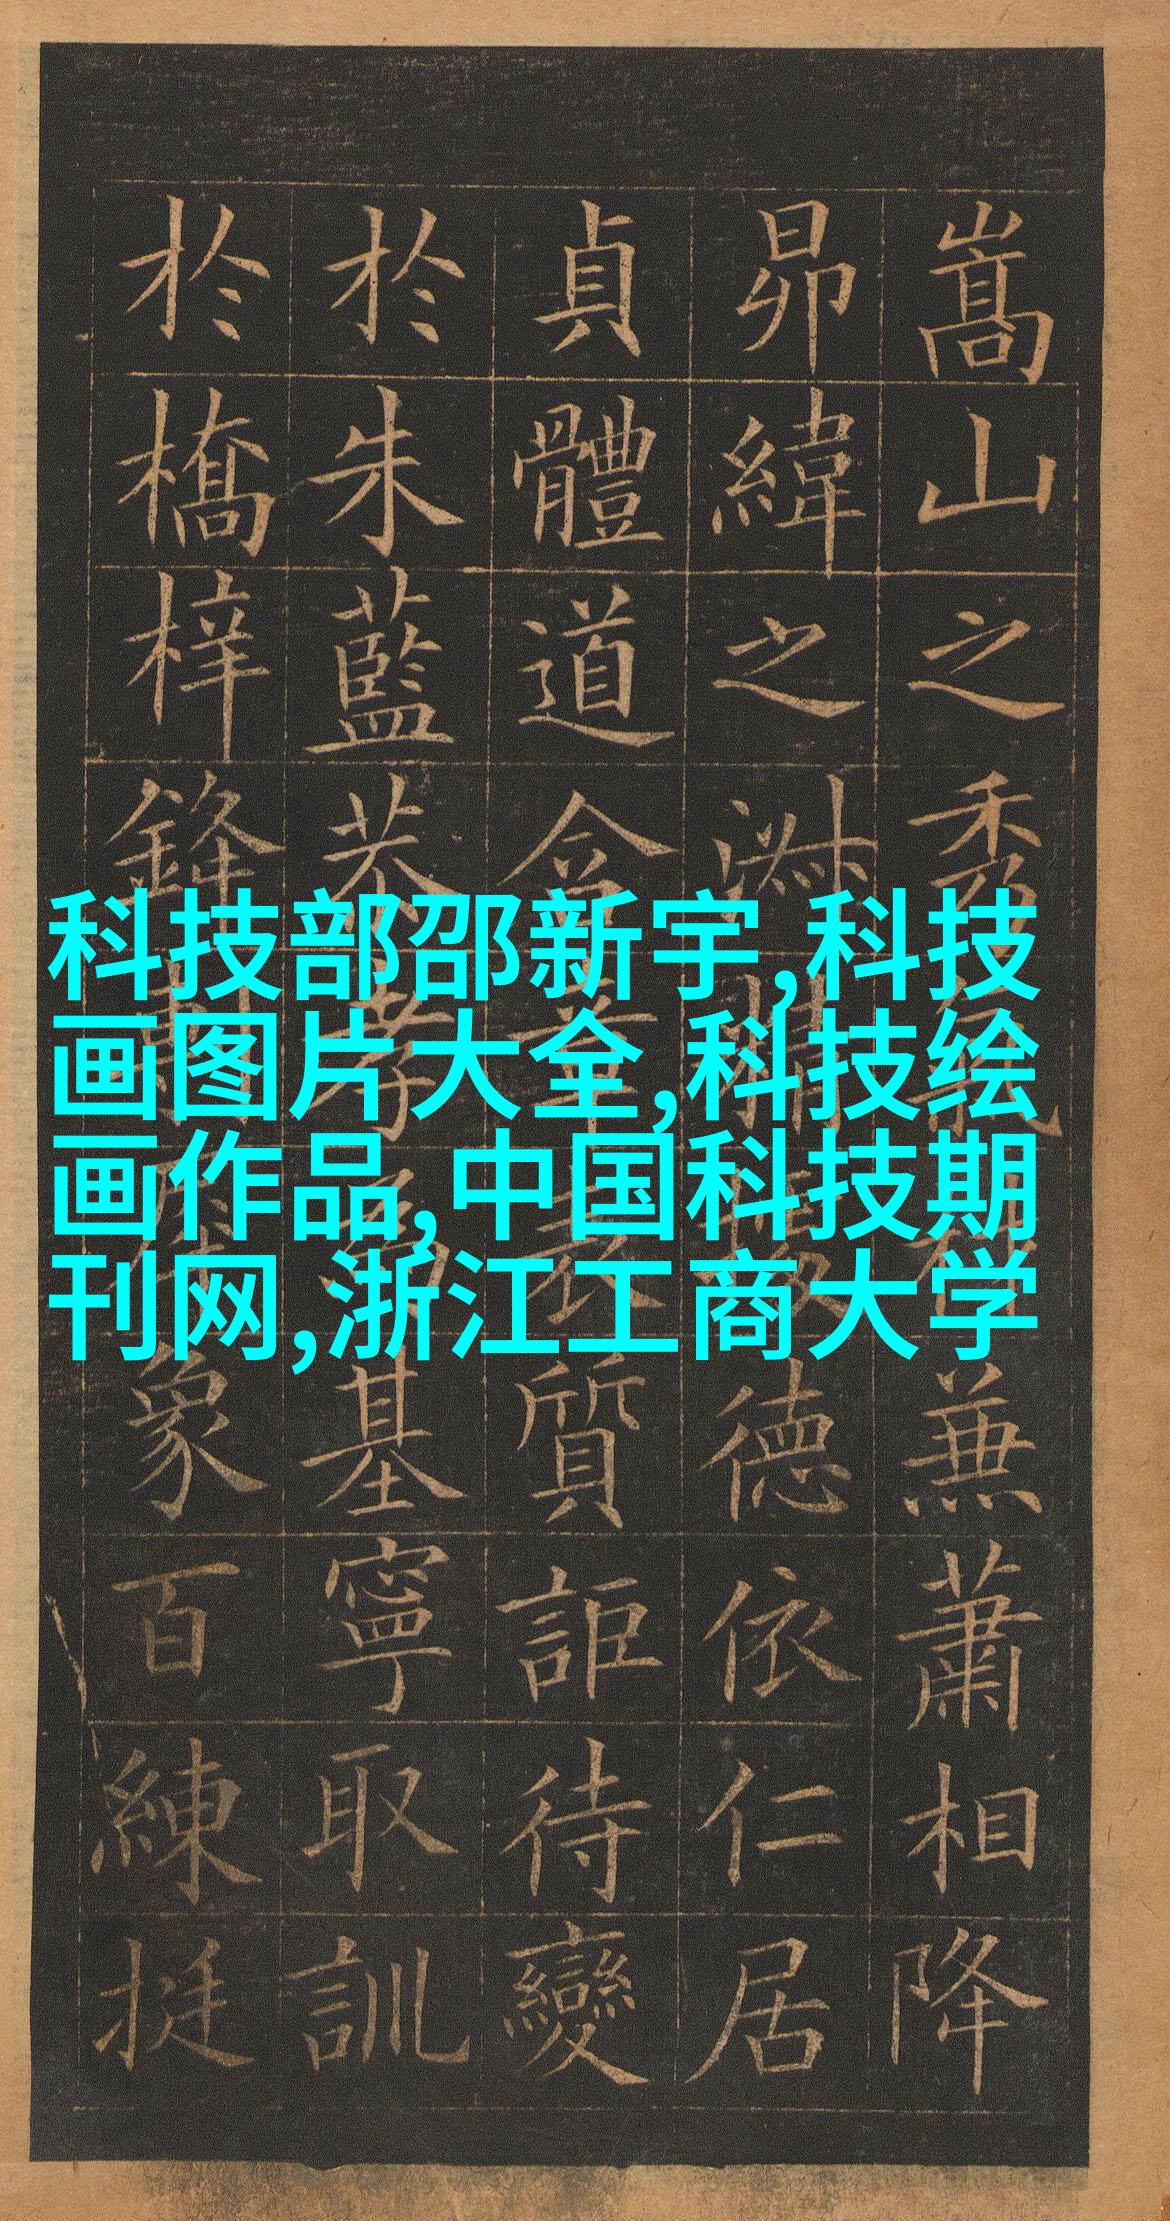 嵩山之秀氣兼蕭相降
昴緯之淑德依仁居
貞體道含章表質詎待變
於朱藍恭孝為基寧取訓
於橋梓鋒象百練挺
科技部邵新宇,科技
画图片大全,科技绘
画作品,中国科技期
刊网,浙江工商大学